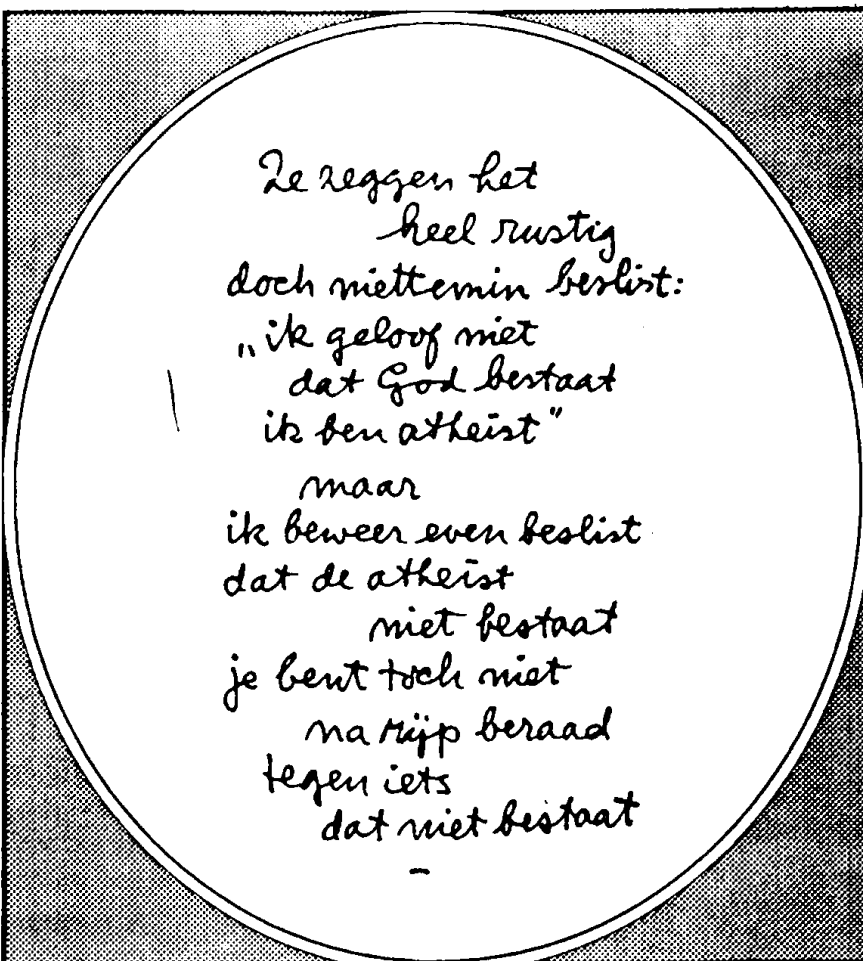 Ze zeggen het
heel rustig
doch niettemin beslist:
„ik geloof niet
dat God bestaat
ik ben atheist"
maar
ik beweer even beslist
dat de atheist
niet bestaat
je bent toch niet
na rijp beraad
tegen iets
dat niet bestaat
-